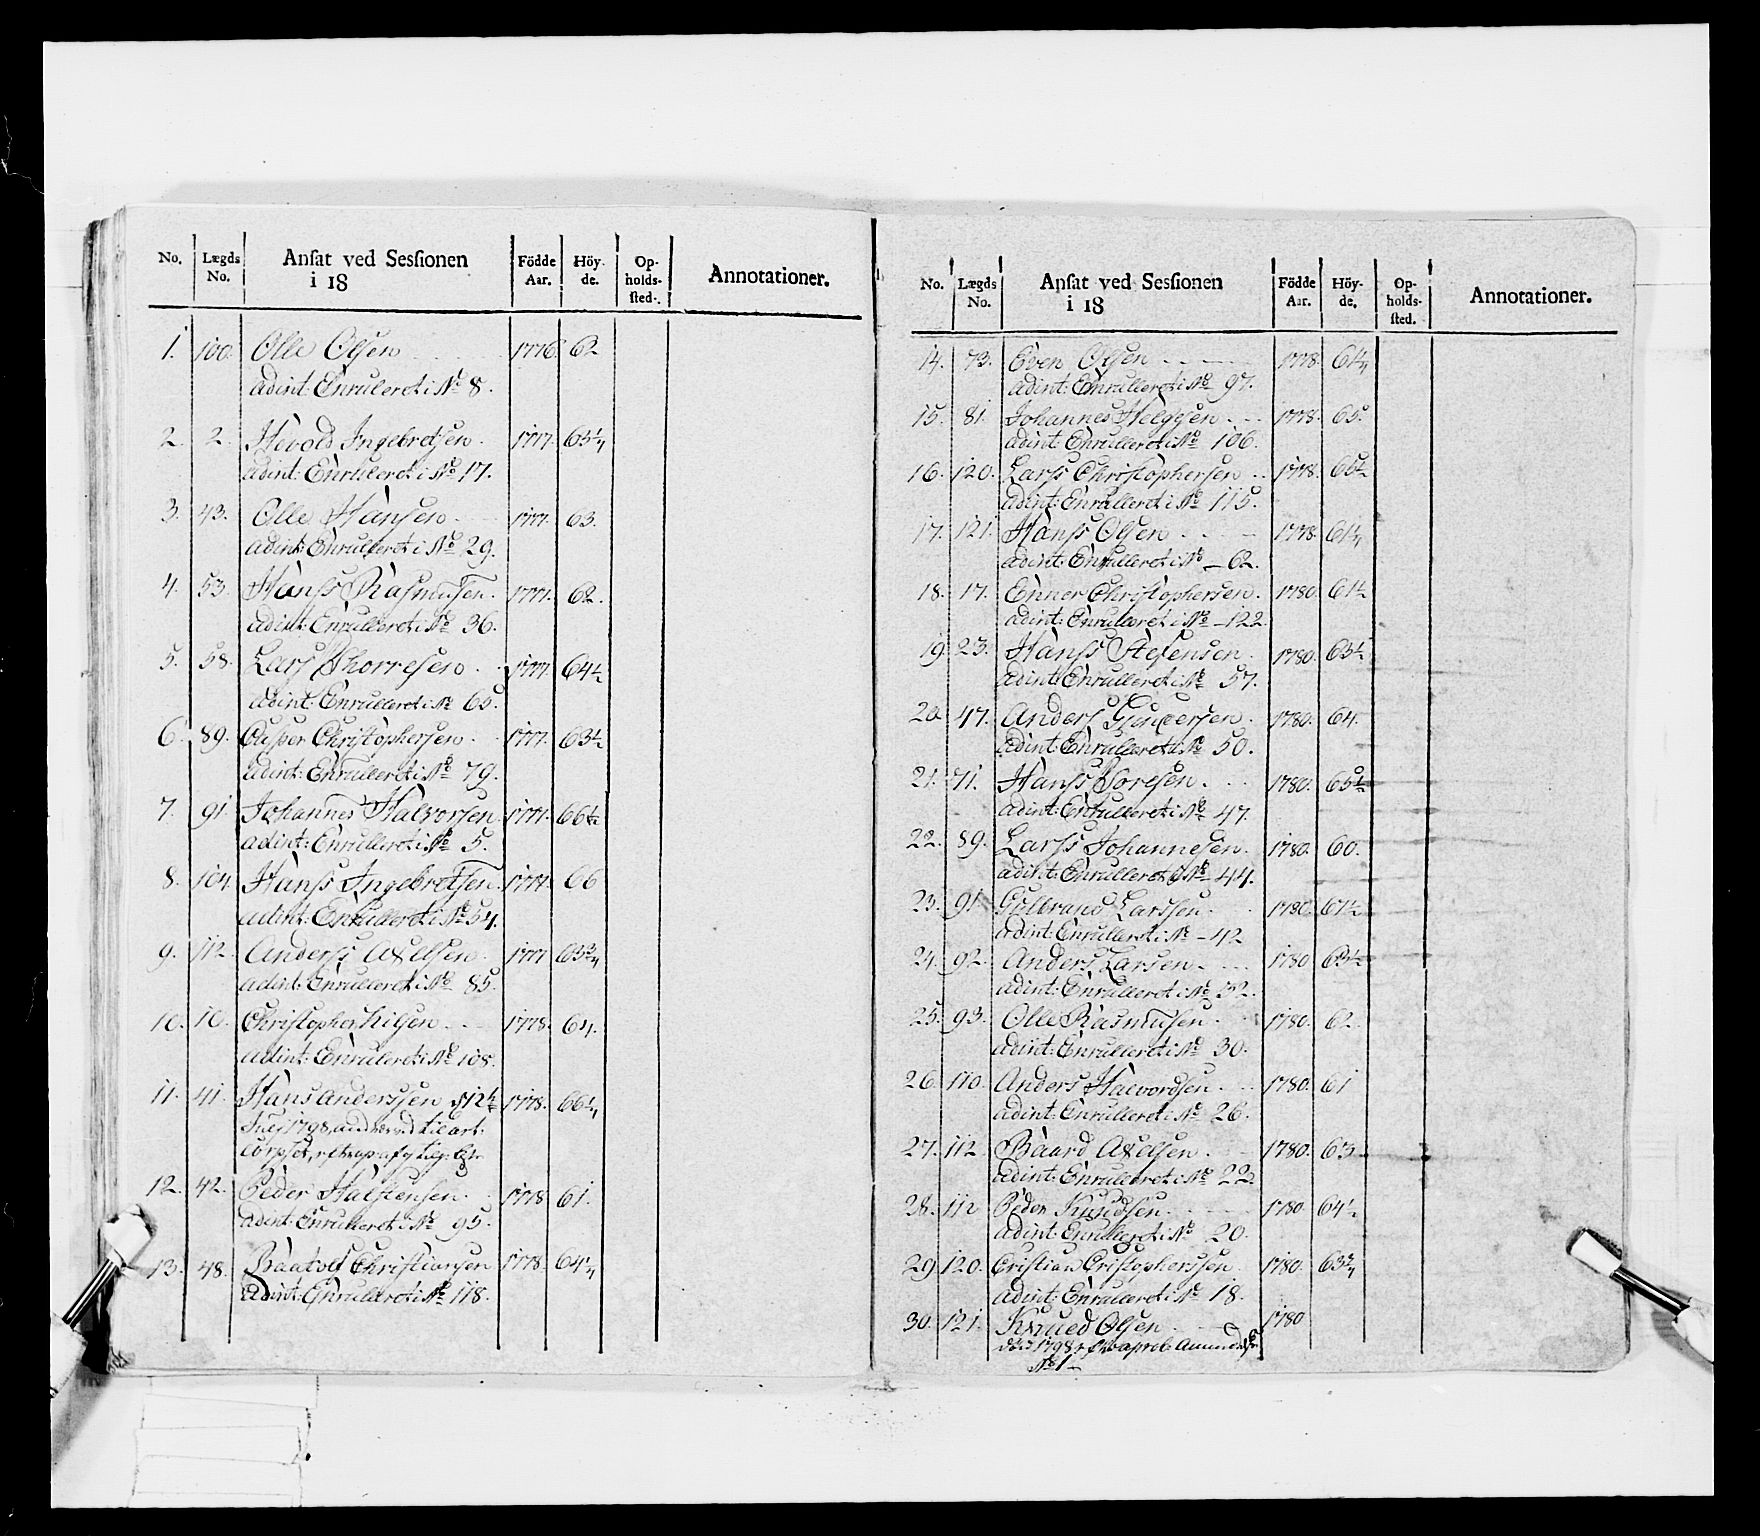 No. Lægds No. Ansat ved Sessionen i 18 Födde Aar. Höy-de. Op-holds-sted. Annotationer.
1. 100. Olle Olsen 1776. 62
adint: Enrulleret i No 8.
2. 2. Ingebretsen. 1777. 63¼
adint: Enrulleret i No 17.
3. 43. Olle Hansen 1777. 63.
adint: Enrulleret i No 29.
4. 53. Hanss Rasmusen. 1777. 62.
adint: Enrulleret i No 36.
5. 58. Lars Thorresen 1777. 64½
adint: Enrulleret i No 65.
6. 89. Casper Christophersen. 1777. 63½
adint: Enrulleret i No 79.
7. 91 Johannes Halvorsen 1777. 66½
adint: Enrulleret i No 5.
8. 104 Hanss Ingebretsen. 1777. 66
adint: Enrulleret i No 54.
9. 112. Anderss Axelsen. 1777 63¾
adint: Enrulleret i No 85.
10. 10. Christopher Nilsen 1778. 64.
adint: Enrulleret i No 108.
11. 41. Hans Anderssen 1778. 66¼
1798,
12. 42. Peder Halstensen. 1778 61.
adint: Enrulleret i No 95.
13. 48. Christiansen 1778. 64¼
adint: Enrulleret i No 118.
No. Lægds No. Ansat ved Sessionen i 18 Födde Aar. Höy-de. Op-holds-sted. Annotationer.
14. 73. Even Olsen 1778. 61¼
adint: Enrulleret i No 97.
15. 81. Johannes Helgesen 1778. 65.
adint: Enrulleret i No 106.
16. 120. Larss Christophersen 1778. 65½
adint: Enrulleret i No 115.
17. 121. Hanss Olsen 1778. 61¼
adint: Enrulleret i No 62.
18. 17. Enner Christophersen. 1780. 61½
adint: Enrulleret i No 122.
19 23. Hanss Stefensen. 1780. 63½
adint: Enrulleret i No 57.
20 47. Anders 1780. 64.
adint: Enrulleret i No 50.
21. 71. Hanss Toresen. 1780. 65½
adint: Enrulleret i No 47.
22. 89. Larss Johannesen. 1780. 60.
adint: Enrulleret i No 44.
23. 91 Gulbrand Larssen. 1780. 61½
adint: Enrulleret i No 42
24. 92. Anders Larsen. 1780 63½
adint: Enrulleret i No 32.
25. 93. Olle Rasmusen. 1780. 62.
adint: Enrulleret i No 30.
26. 110. Anders Halvordsen. 1780. 61
adint: Enrulleret i No 26.
27. 112 Baard Axelsen. 1780. 63
adint: Enrulleret i No 22.
28. 112 Peder Knudsen. 1780. 64½
adint: Enrulleret i No 20.
29 120. Cristian Cristopherssen. 1780. 63¾
adint: Enrulleret i No 18.
30. 121. Knued Olsen 1780
1798
No 1